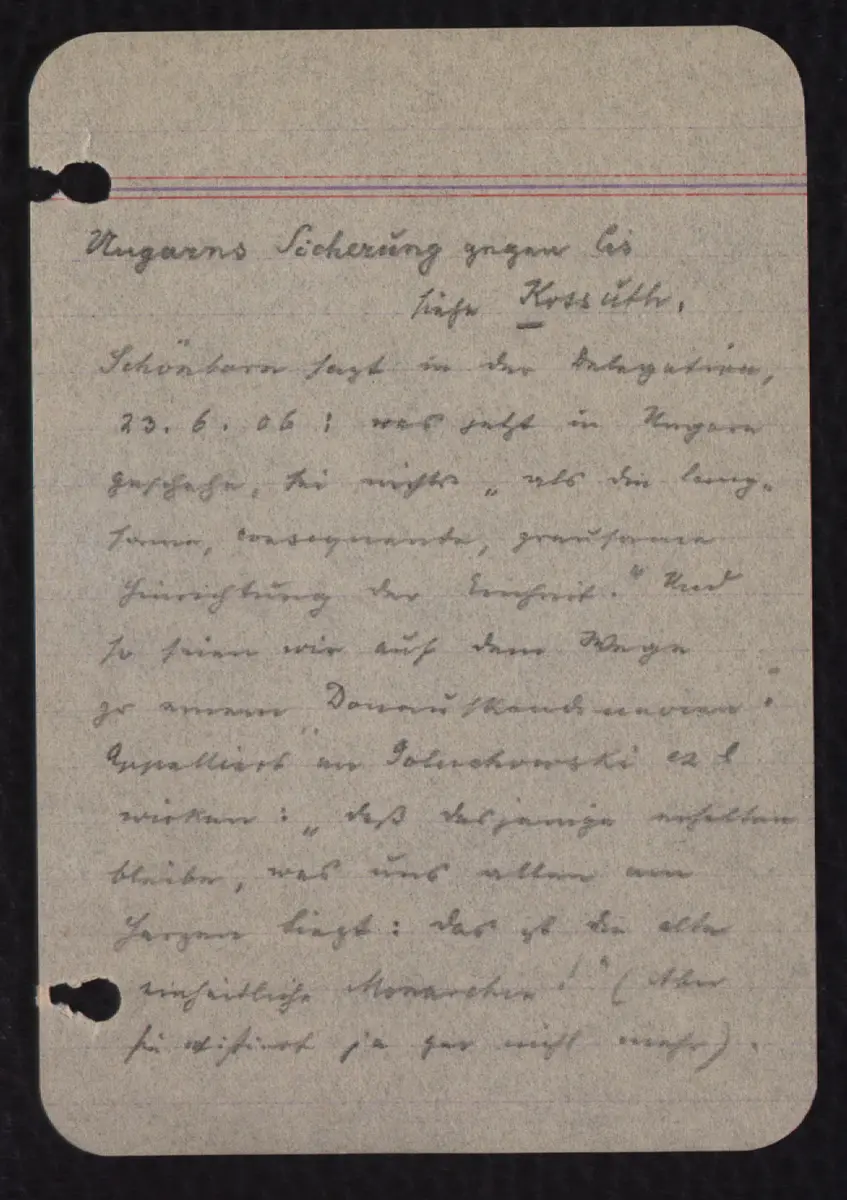 Ungarns Sicherung gegen Cis
siehe Kossuth.
Schönborn sagt in der Delegation,
23. 6. 06: was jetzt in Ungarn
geschehe, sei nichts „als die lang-
same, consequente, grausame
Hinrichtung der Einheit." Und
so seien wir auf dem Wege
zu einem „Donauskandinavien"
Appelliert an Goluchowski
wirken: „daß dasjenige erhalten
bleibe, was uns allen am
Herzen liegt: das ist die alte
einheitliche Monarchie!" (Aber
sie existiert ja gar nicht mehr).